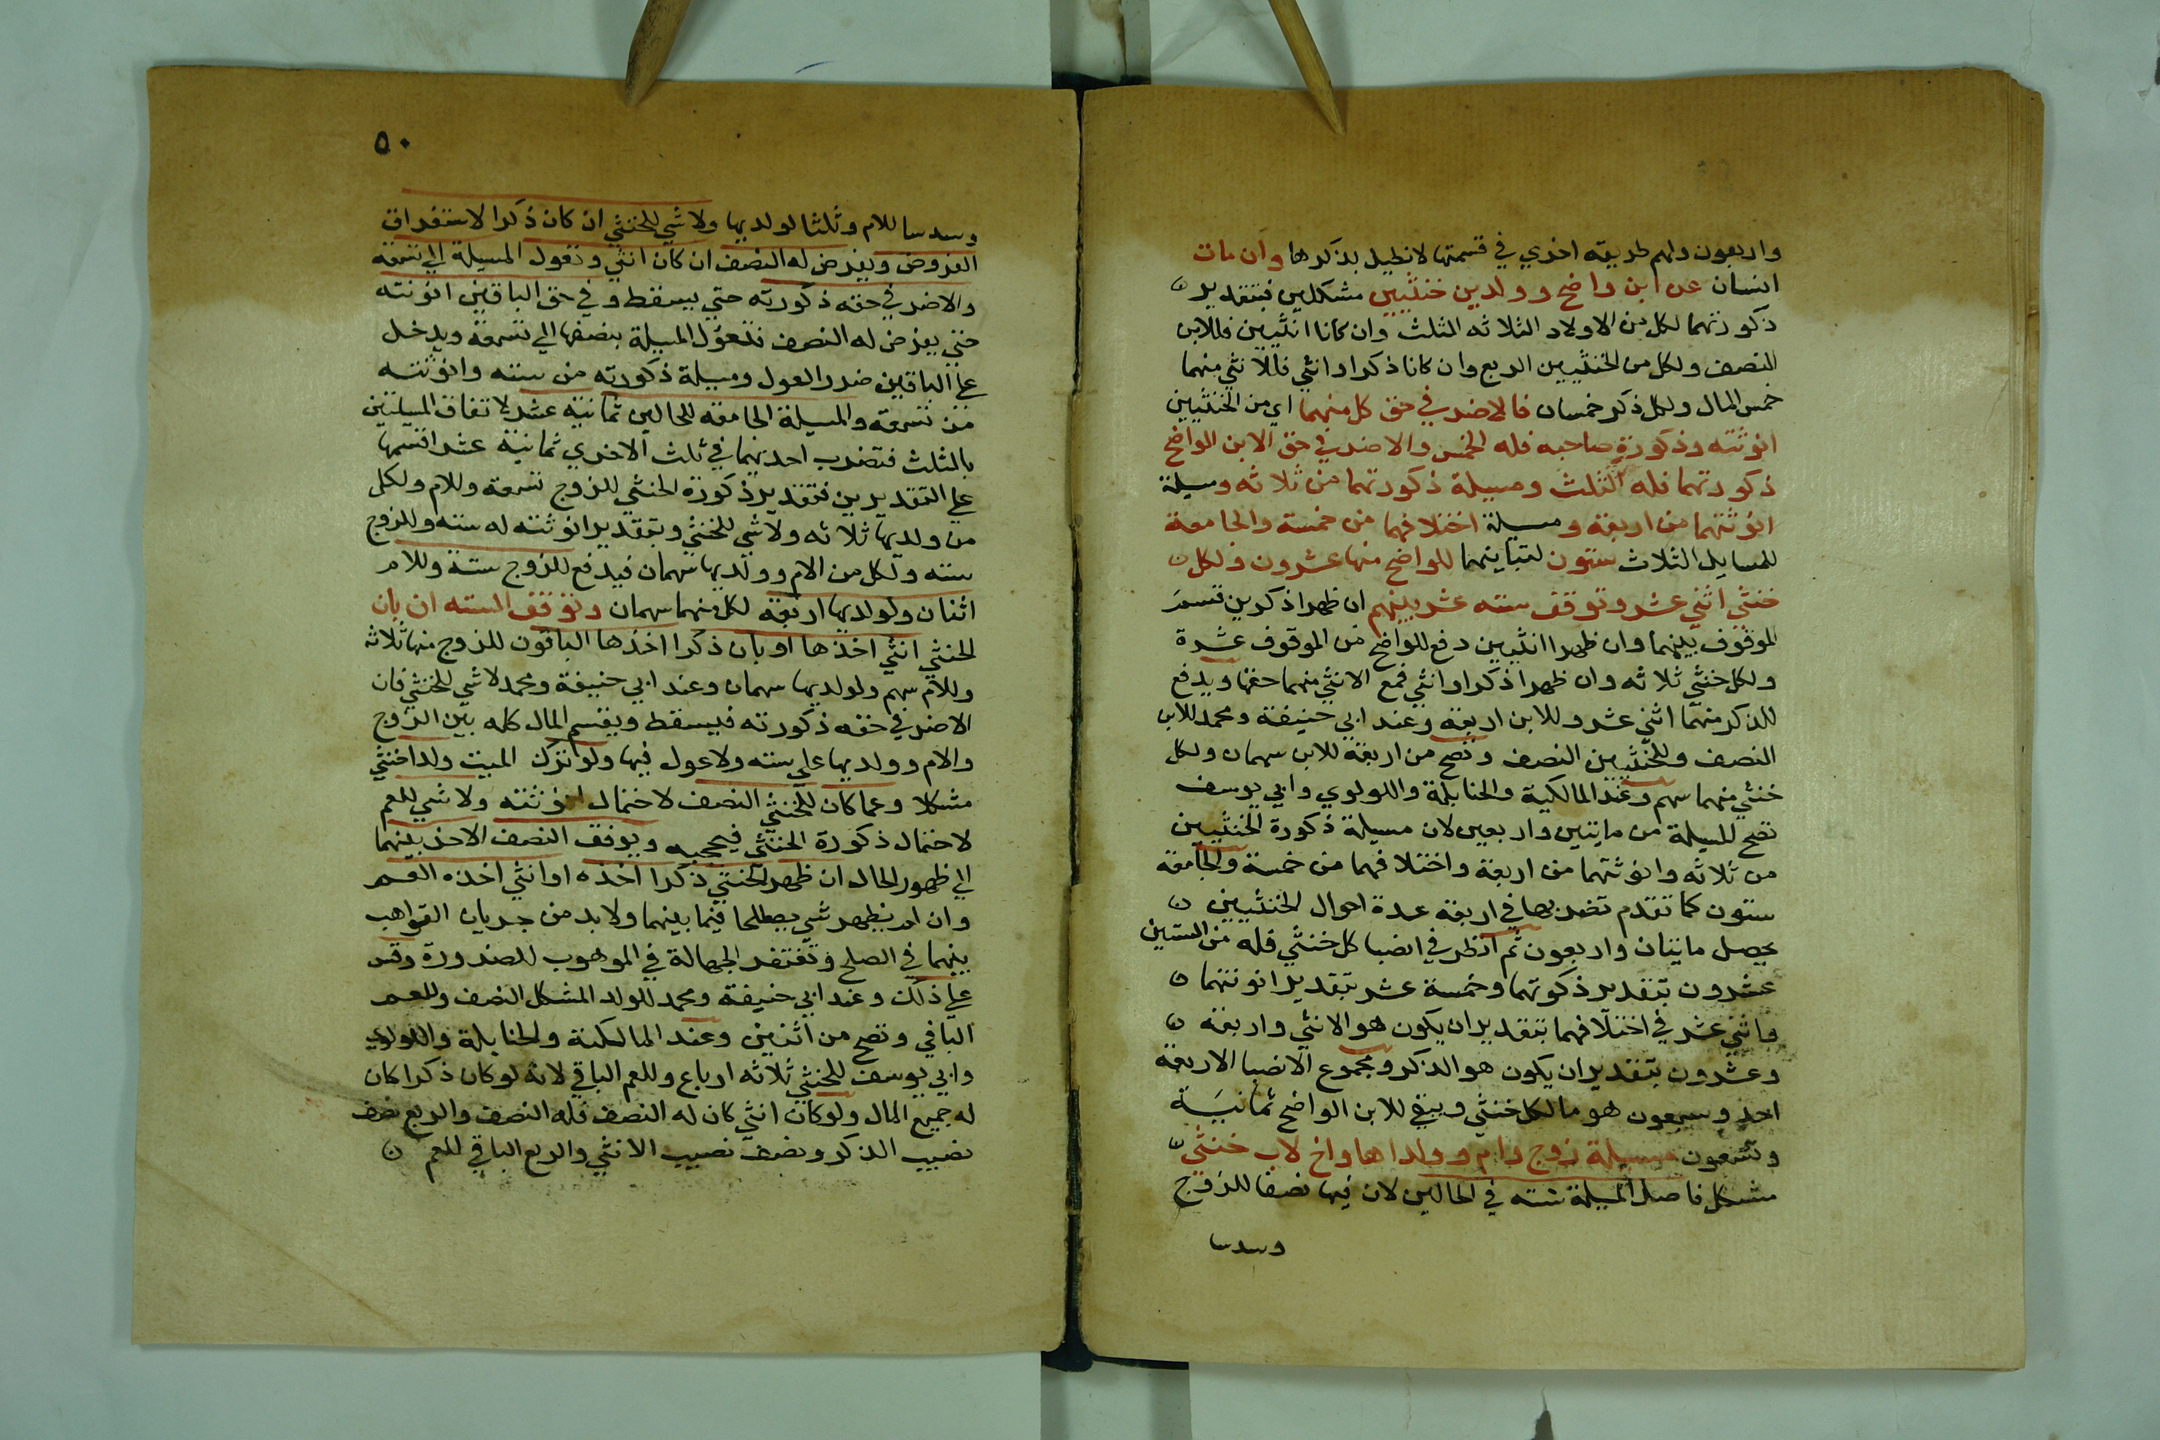 واربعون ولهم طريقه اخري في قسمتها لانطيل بذكرها وان مات
انسان عن ابن واضح وولدين خنثيين مشكلين فبتقدير
ذكورتهما لكل من الاولاد الثلاثه الثلث وان كانا انثيين فللابن
النصف ولكل من الخنثيين الربع وان كانا ذكرا وانثي فللانثي منهما
خمس المال ولكل ذكر خمسان فالاضر في حق كل منهما اي من الخنثيين
انوثته وذكورة صاحبه فله الخمس والاضر في حق الابن الواضح
ذكورتهما فله الثلث ومسيلة ذكورتهما من ثلاثه ومسيلة
انوثتهما من اربعة ومسيلة اختلافهما من خمسة والجامعة
للمسايل الثلاث ستون لتباينهما للواضح منها عشرون ولكل
خنثي اثني عشر وتوقف سته عشر بينهم ان ظهرا ذكرين قسم
الموقوف بينهما وان ظهرا انثيين دفع للواضح من الموقوف عشرة
ولكل خنثي ثلاثه وان ظهرا ذكرا وانثي فمع الانثي منهما حقها ويدفع
للذكر منهما اثني عشر وللابن اربعة وعند ابي حنيفة ومحمد للابن
النصف وللخنثيين النصف وتصح من اربعة للابن سهمان ولكل
خنثي منهما سهم وعند المالكية والحنابلة واللولوي وابي يوسف
تصح المسيلة من مايتين واربعين لان مسيلة ذكورة الخنثيين
من ثلاثه وانوثتهما من اربعة واختلافهما من خمسة والجامعة
ستون كما تقدم تضربها في اربعة عدة احوال الخنثيين
يحصل مايتان واربعون ثم انظر في انصبا كل خنثي فله من الستين
عشرون بتقدير ذكورتهما وخمسة عشر بتقدير انوثتهما
واثني عشر في اختلافهما بتقدير ان يكون هو الانثي واربعة
وعشرون بتقدير ان يكون هو الذكر ومجموع الانصبا الاربعة
احد وسبعون هو ما لكل خنثي ويبقي للابن الواضح ثمانية
وتسعون مسيلة زوج وام وولداها واخ لاب خنثي
مشكل فاصل المسيلة سته في الحالين لان فيها نصفا للزوج
وسدسا
٥٠
وسدسا للام وثلثا لولديها ولا شي للخنثي ان كان ذكرا لاستغراق
الفروض ويفرض له النصف ان كان انثي وتعول المسيلة الي تسعة
والاضر في حقه ذكورته حتي يسقط وفي حق الباقين انوثته
حتي يفرض له النصف فتعول المسيلة بنصفها الي تسعة ويدخل
علي الباقين ضرر العول ومسيلة ذكورته من سته وانوثته
من تسعة والمسيلة الجامعة للحالين ثمانية عشر لاتفاق المسلتين
بالثلث فتضرب احديهما في ثلث الاخري ثمانية عشر اقسمها
علي التقديرين فبتقدير ذكورة الخنثي للزوج تسعة وللام ولكل
من ولديها ثلاثه ولا شي للخنثي وبتقدير انوثته له سته وللزوج
سته ولكل من الام وولديها سهمان فيدفع للزوج ستة وللام
اثنان ولولديها اربعة لكل منهما سهمان وتوقف السته ان بان
الخنثي انثي اخذها او بان ذكرا اخذها الباقون للزوج منها ثلاثه
وللام سهم ولولديها سهمان وعند ابي حنيفة ومحمد لا شي للخنثي فان
الاضر في حقه ذكورته فيسقط ويقسم المال كله بين الزوج
والام وولديها علي سته ولا عول فيها ولو ترك الميت ولدا خنثي
مشكلا وعما كان للخنثي النصف لاحتمال انوثته ولا شي للعم
لاحتمال ذكورة الخنثي فيحجبه ويوقف النصف الاخر بينهما
الي ظهور الحال ان ظهر الخنثي ذكرا اخذه او انثي اخذه العم
وان لم يظهر شي يصطلحا فيما بينهما ولا بد من جريان التواهب
بينهما في الصلح وتغتفر الجهالة في الموهوب للضرورة وقس
علي ذلك وعند ابي حنيفة ومحمد للولد المشكل النصف وللعم
الباقي وتصح من اثنين وعند المالكية والحنابلة واللولوي
وابي يوسف للخنثي ثلاثه ارباع وللعم الباقي لانه لو كان ذكرا كان
له جميع المال ولو كان انثي كان له النصف فله النصف والربع نصف
نصيب الذكر ونصف نصيب الانثي والربع الباقي للعم